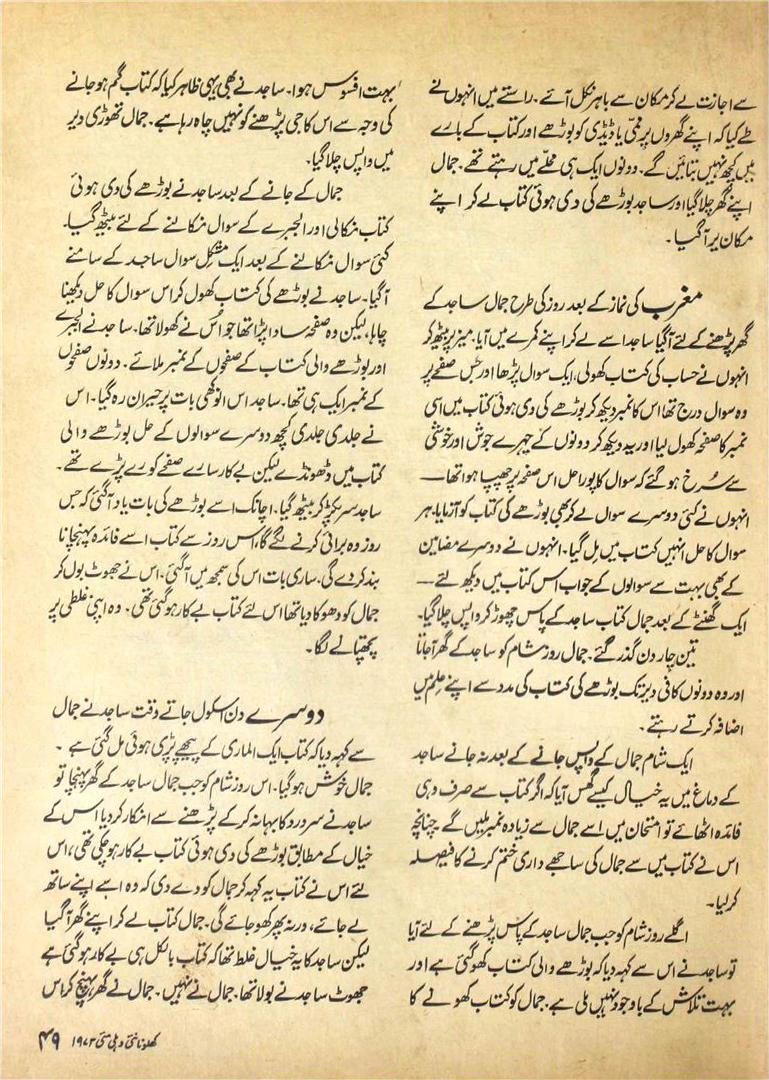 سے اجازت لے کر مکان سے باہر نکل آئے۔ راستے میں انہوں نے
طے کیا کہ اپنے گھروں پر ممّی یا ڈیڈی کو بوڑھے اور کتاب کے بارے
میں کچھ نہیں بتائیں گے۔ دونوں ایک ہی محلّے میں رہتے تھے۔ جمال
اپنے گھر چلا گیا اور ساجد بوڑھے کی دی ہوئی کتاب لے کر اپنے
مکان پر آگیا۔
مغرب کی نماز کے بعد روز کی طرح جمال ساجد کے
گھر پڑھنے کے لئے آگیا ساجد اسے لے کر اپنے کمرے میں آیا۔ میز پر بیٹھ کر
انہوں نے حساب کی کتاب کھولی، ایک سوال پڑھا اور جس صفحے پر
وہ سوال درج تھا اس کا نمبر دیکھ کر بوڑھے کی دی ہوئی کتاب میں اسی
نمبر کا صفحہ کھول لیا اور یہ دیکھ کر دونوں کے چہرے جوش اور خوشی
سے سُرخ ہو گئے کہ سوال کا پورا حل اس صفحہ پر چھپا ہوا تھا —
انہوں نے کئی دوسرے سوال لے کر بھی بوڑھے کی کتاب کو آزمایا۔ ہر
سوال کا حل انہیں کتاب میں مل گیا۔ انہوں نے دوسرے مضامین
کے بھی بہت سے سوالوں کے جواب اس کتاب میں دیکھ لئے —
ایک گھنٹے کے بعد جمال کتاب ساجد کے پاس چھوڑ کر واپس چلا گیا۔
تین چار دن گذر گئے۔ جمال روز شام کو ساجد کے گھر آجاتا
اور وہ دونوں کافی دیر تک بوڑھے کی کتاب کی مدد سے اپنے علم میں
اضافہ کرتے رہتے۔
ایک شام جمال کے واپس جانے کے بعد نہ جانے ساجد
کے دماغ میں یہ خیال کیسے گھس آیا کہ اگر کتاب سے صرف وہی
فائدہ اٹھائے تو امتحان میں اسے جمال سے زیادہ نمبر ملیں گے۔ چنانچہ
اس نے کتاب میں سے جمال کی ساجھے داری ختم کرنے کا فیصلہ
کر لیا۔
اگلے روز شام کو جب جمال ساجد کے پاس پڑھنے کے لئے آیا
تو ساجد نے اس سے کہہ دیا کہ بوڑھے والی کتاب کھو گئی ہے اور
بہت تلاش کے باوجود نہیں ملی ہے۔ جمال کو کتاب کھونے کا
بہت افسوس ہوا۔ ساجد نے بھی یہی ظاہر کیا کہ کتاب گم ہو جانے
کی وجہ سے اس کا جی پڑھنے کو نہیں چاہ رہا ہے۔ جمال تھوڑی دیر
میں واپس چلا گیا۔
جمال کے جانے کے بعد ساجد نے بوڑھے کی دی ہوئی
کتاب نکالی اور الجبرے کے سوال نکالنے کے لئے بیٹھ گیا۔
کئی سوال نکالنے کے بعد ایک مشکل سوال ساجد کے سامنے
آگیا۔ ساجد نے بوڑھے کی کتاب کھول کر اس سوال کا حل دیکھنا
چاہا، لیکن وہ صفحہ سادا پڑا تھا جو اُس نے کھولا تھا۔ ساجد نے الجبرے
اور بوڑھے والی کتاب کے صفحوں کے نمبر ملائے۔ دونوں صفحوں
کے نمبر ایک ہی تھا۔ ساجد اس انوکھی بات پر حیران رہ گیا۔ اس
نے جلدی جلدی کچھ دوسرے سوالوں کے حل بوڑھے والی
کتاب میں ڈھونڈے لیکن بے کار سارے صفحے کورے پڑے تھے۔
ساجد سر پکڑ کر بیٹھ گیا۔ اچانک اسے بوڑھے کی بات یاد آگئی کہ جس
روز وہ برائی کرنے لگے گا، اس روز سے کتاب اسے فائدہ پہنچانا
بند کر دے گی۔ ساری بات اس کی سمجھ میں آگئی۔ اس نے جھوٹ بول کر
جمال کو دھوکا دیا تھا اس لئے کتاب بے کار ہو گئی تھی۔ وہ اپنی غلطی پر
پچھتانے لگا۔
دوسرے دن اسکول جاتے وقت ساجد نے جمال
سے کہہ دیا کہ کتاب ایک الماری کے پیچھے پڑی ہوئی مل گئی ہے۔
جمال خوش ہو گیا۔ اس روز شام کو جب جمال ساجد کے گھر پہنچا تو
ساجد نے سر درد کا بہانہ کر کے پڑھنے سے انکار کر دیا اس کے
خیال کے مطابق بوڑھے کی دی ہوئی کتاب بے کار ہو چکی تھی، اس
لئے اس نے کتاب یہ کہہ کر جمال کو دے دی کہ وہ اسے اپنے ساتھ
لے جائے، ورنہ پھر کھو جائے گی۔ جمال کتاب لے کر اپنے گھر آگیا
لیکن ساجد کا یہ خیال غلط تھا کہ کتاب بالکل ہی بے کار ہو گئی ہے
جھوٹ ساجد نے بولا تھا۔ جمال نے نہیں۔ جمال نے گھر پہنچ کر اس
کھلونا نئی دہلی مئی ۱۹۷۳ ۴۹